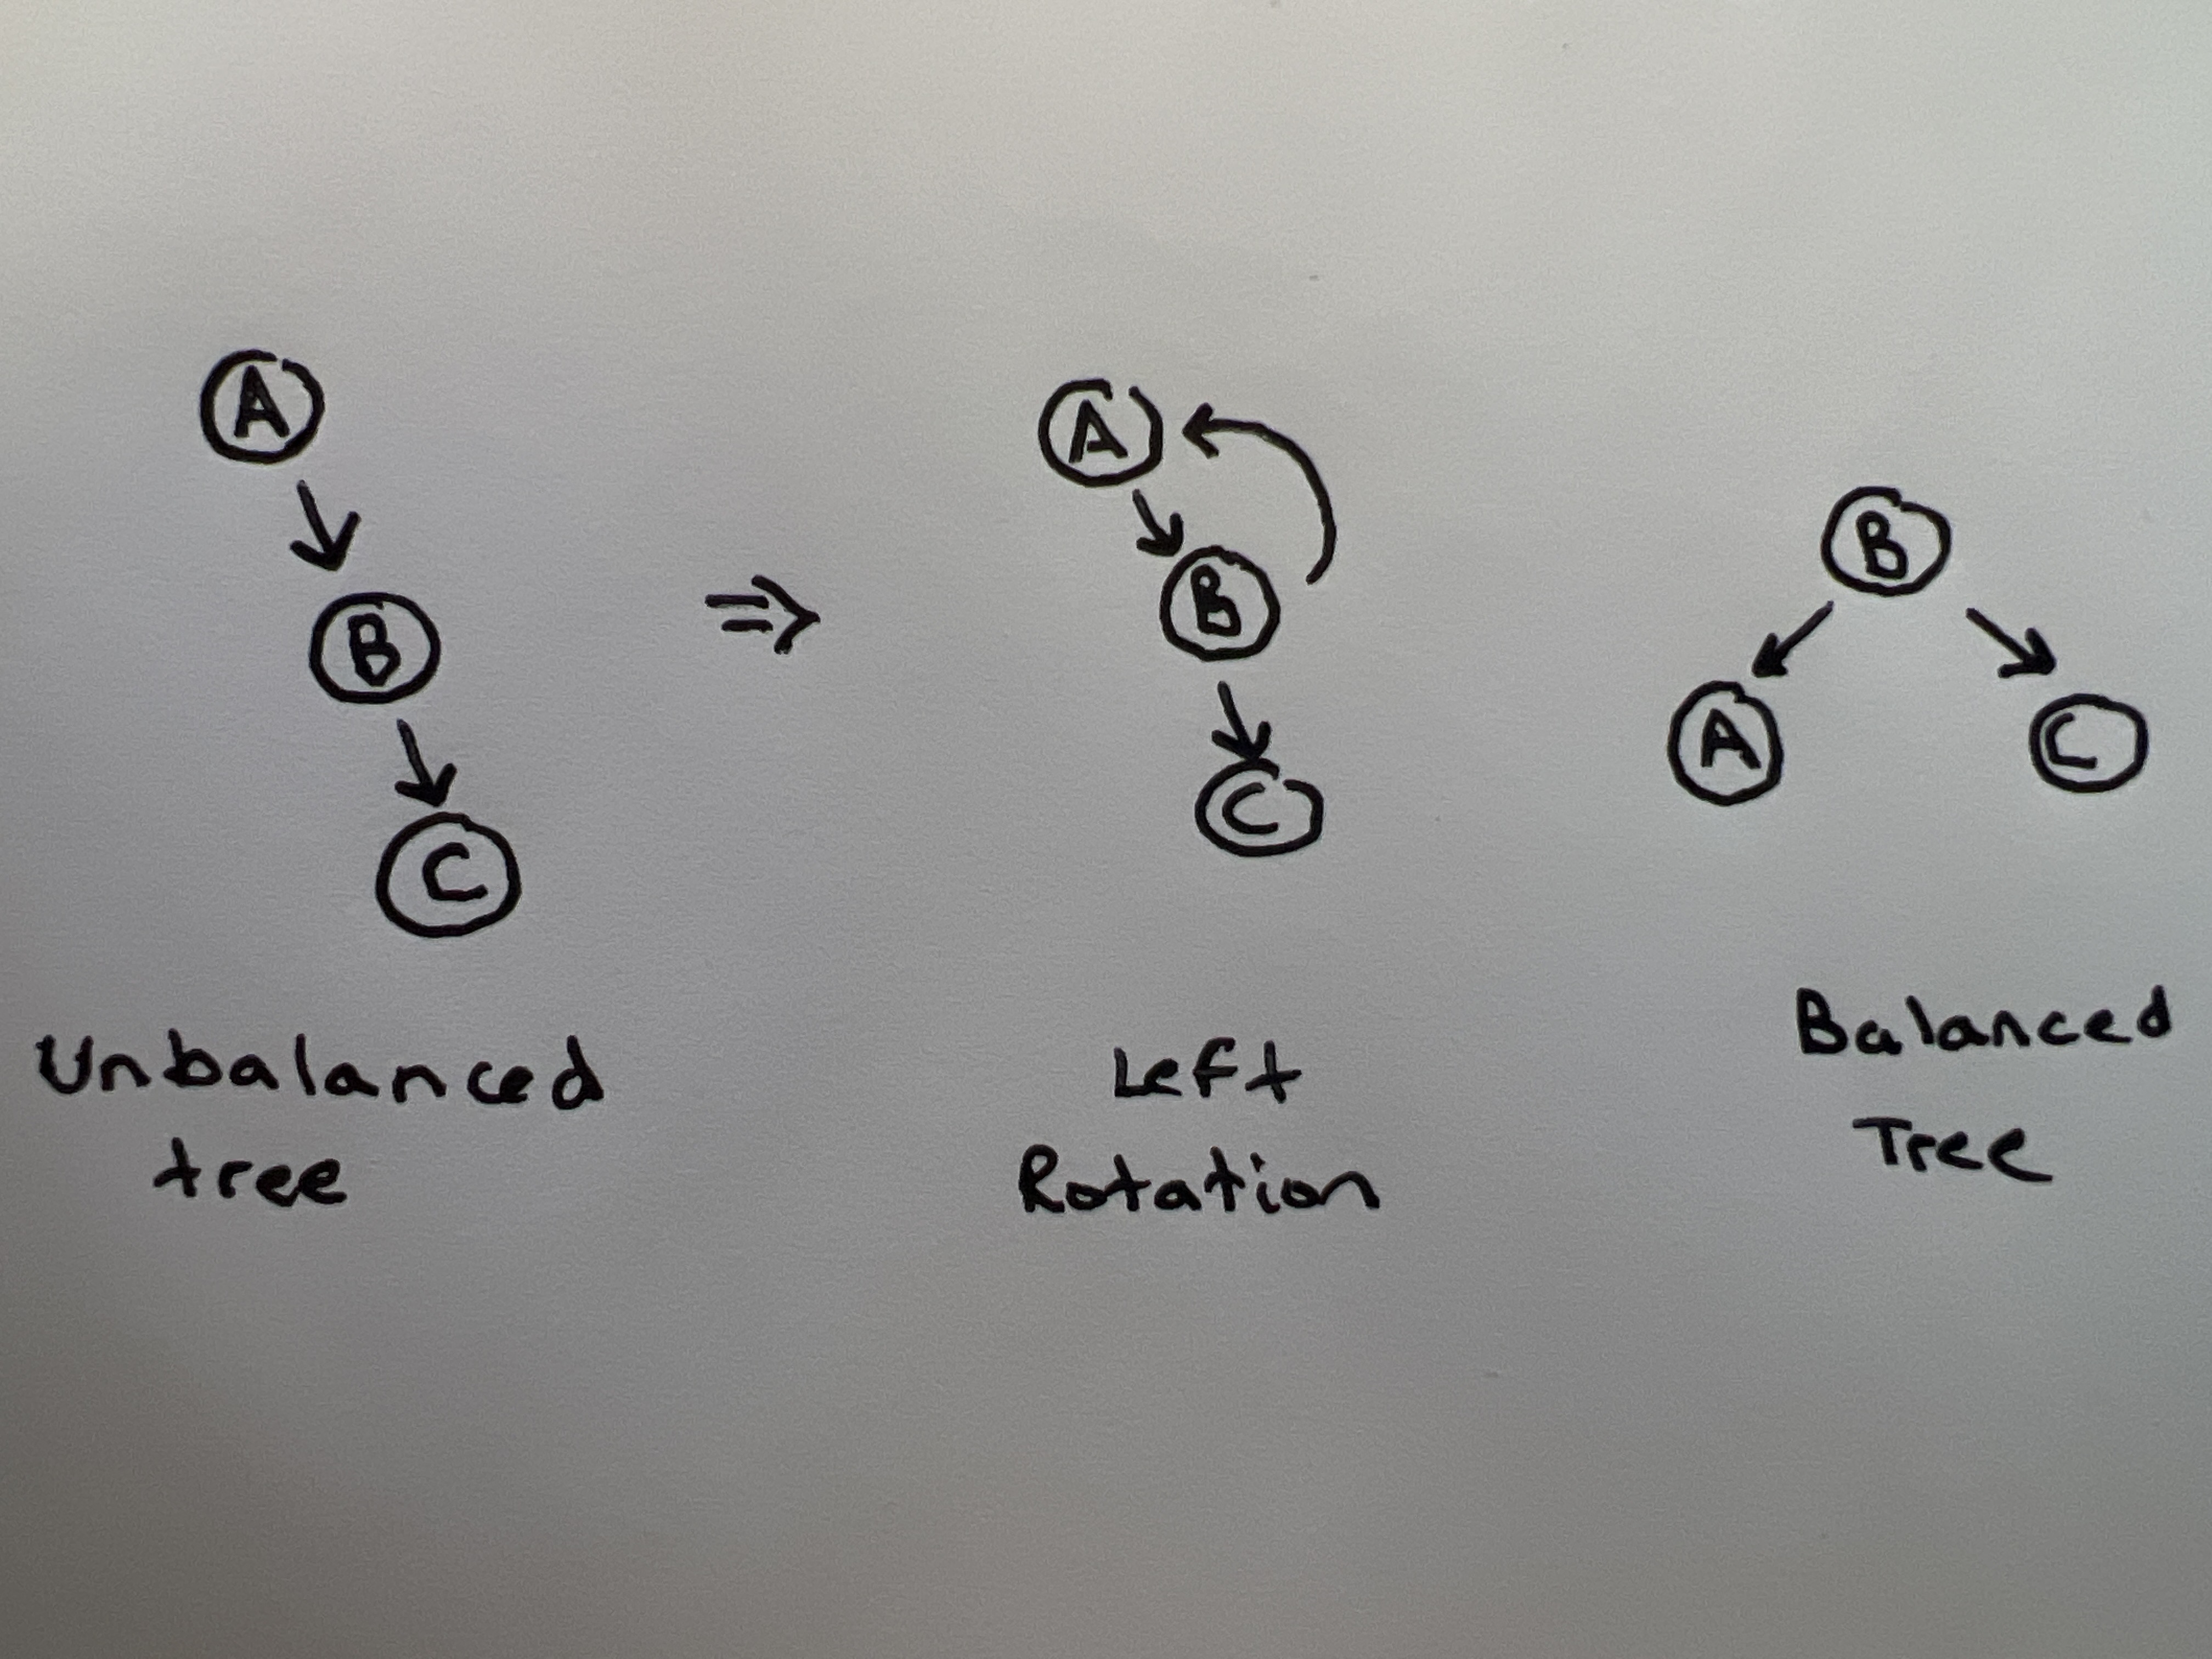 A
B
C
Unbalanced
tree
⇒
A
B
C
Left
Rotation
B
A
C
Balanced
Tree